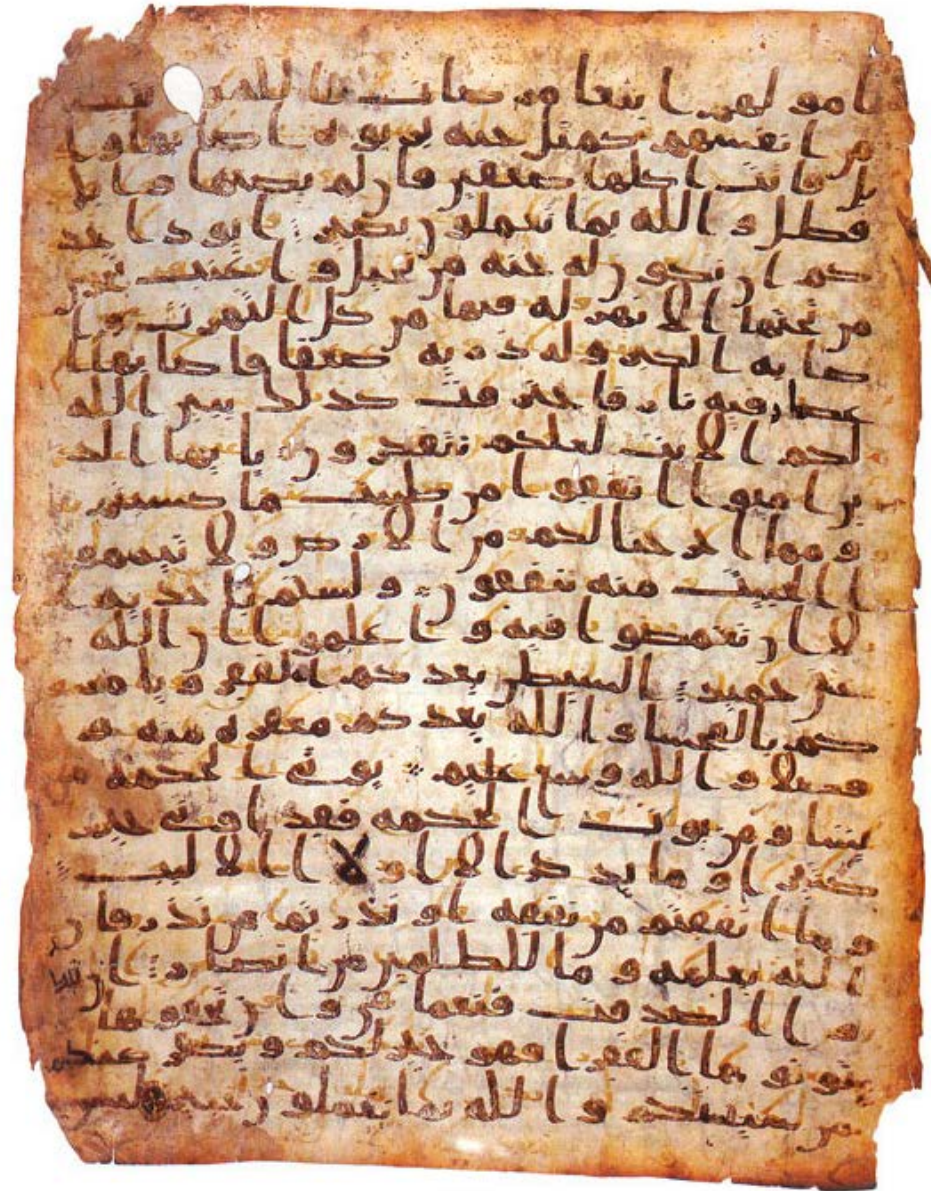 امولهم ابتغا مرضات الله وتثبيتا
من انفسهم كمثل جنه بربوه اصابها وا
بل فاتت اكلها ضعفين فان لم يصبها وابل
فطل والله بما تعملون بصير ايود احد
كم ان تكون له جنه من نخيل واعنب تجري
من تحتها الانهر له فيها من كل الثمرت وا
صابه الكبر وله ذريه ضعفا فاصابها ا
عصار فيه نار فاحترقت كذلك يبين الله
لكم الايت لعلكم تتفكرون يايها الذ
ين امنوا انفقوا من طيبت ما كسبتم
ومما اخرجنا لكم من الارض ولا تيممو
ا الخبيث منه تنفقون ولستم باخذيه ا
لا ان تغمضوا فيه واعلموا ان الله
غني حميد الشيطن يعدكم الفقر ويامر
كم بالفحشا والله يعدكم مغفره منه و
فضلا والله وسع عليم يوتي الحكمه من
يشا ومن يوت الحكمه فقد اوتي خير
كثيرا وما يذكر الا اولا الالبب
وما انفقتم من نفقه او نذرتم من نذر فان
الله يعلمه وما للظلمين من انصار ان تبد
وا الصدقت فنعما هي وان تخفوها
وتوتوها الفقرا فهو خير لكم ونكفر عنكم
من سيتكم والله بما تعملون خبير ليس